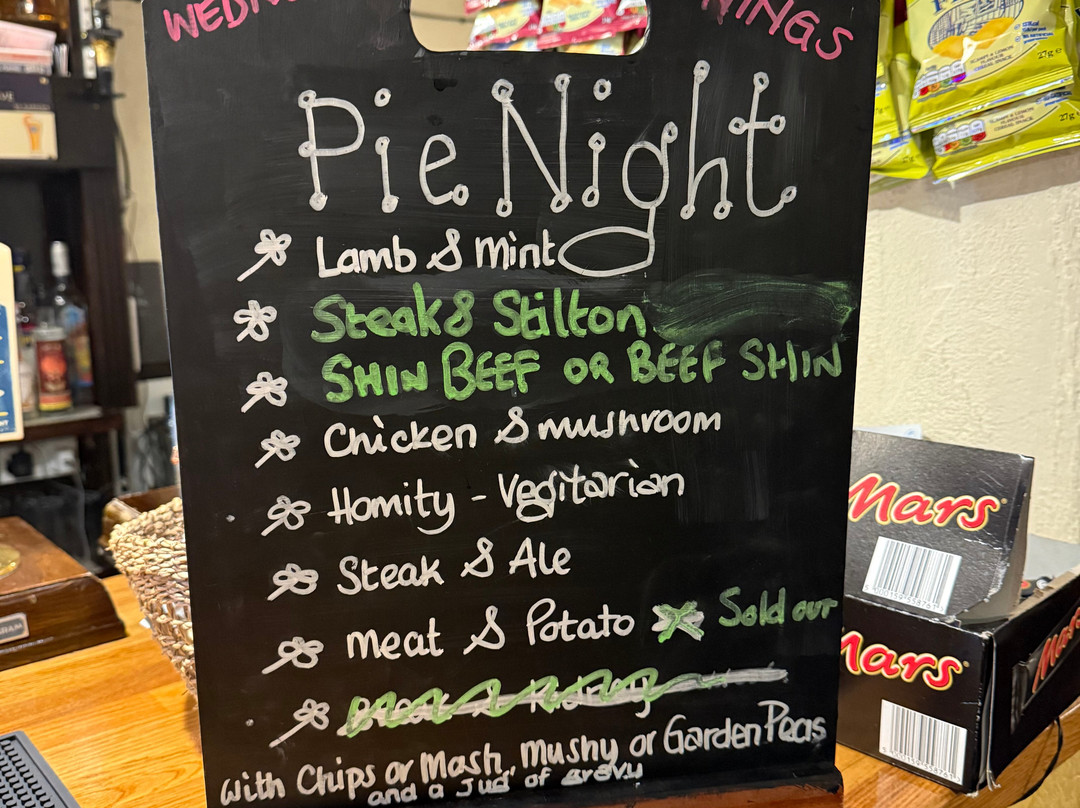 Pie Night
Lamb & Mint
Steak & Stilton
SHIN BEEF OR BEEF SHIN
Chicken & mushroom
Homity - Vegitarian
Steak & Ale
Meat & Potato X Sold out
With Chips or Mash, Mushy or Garden Peas
and a Jug of Gravy
Mars
Mars
Mars